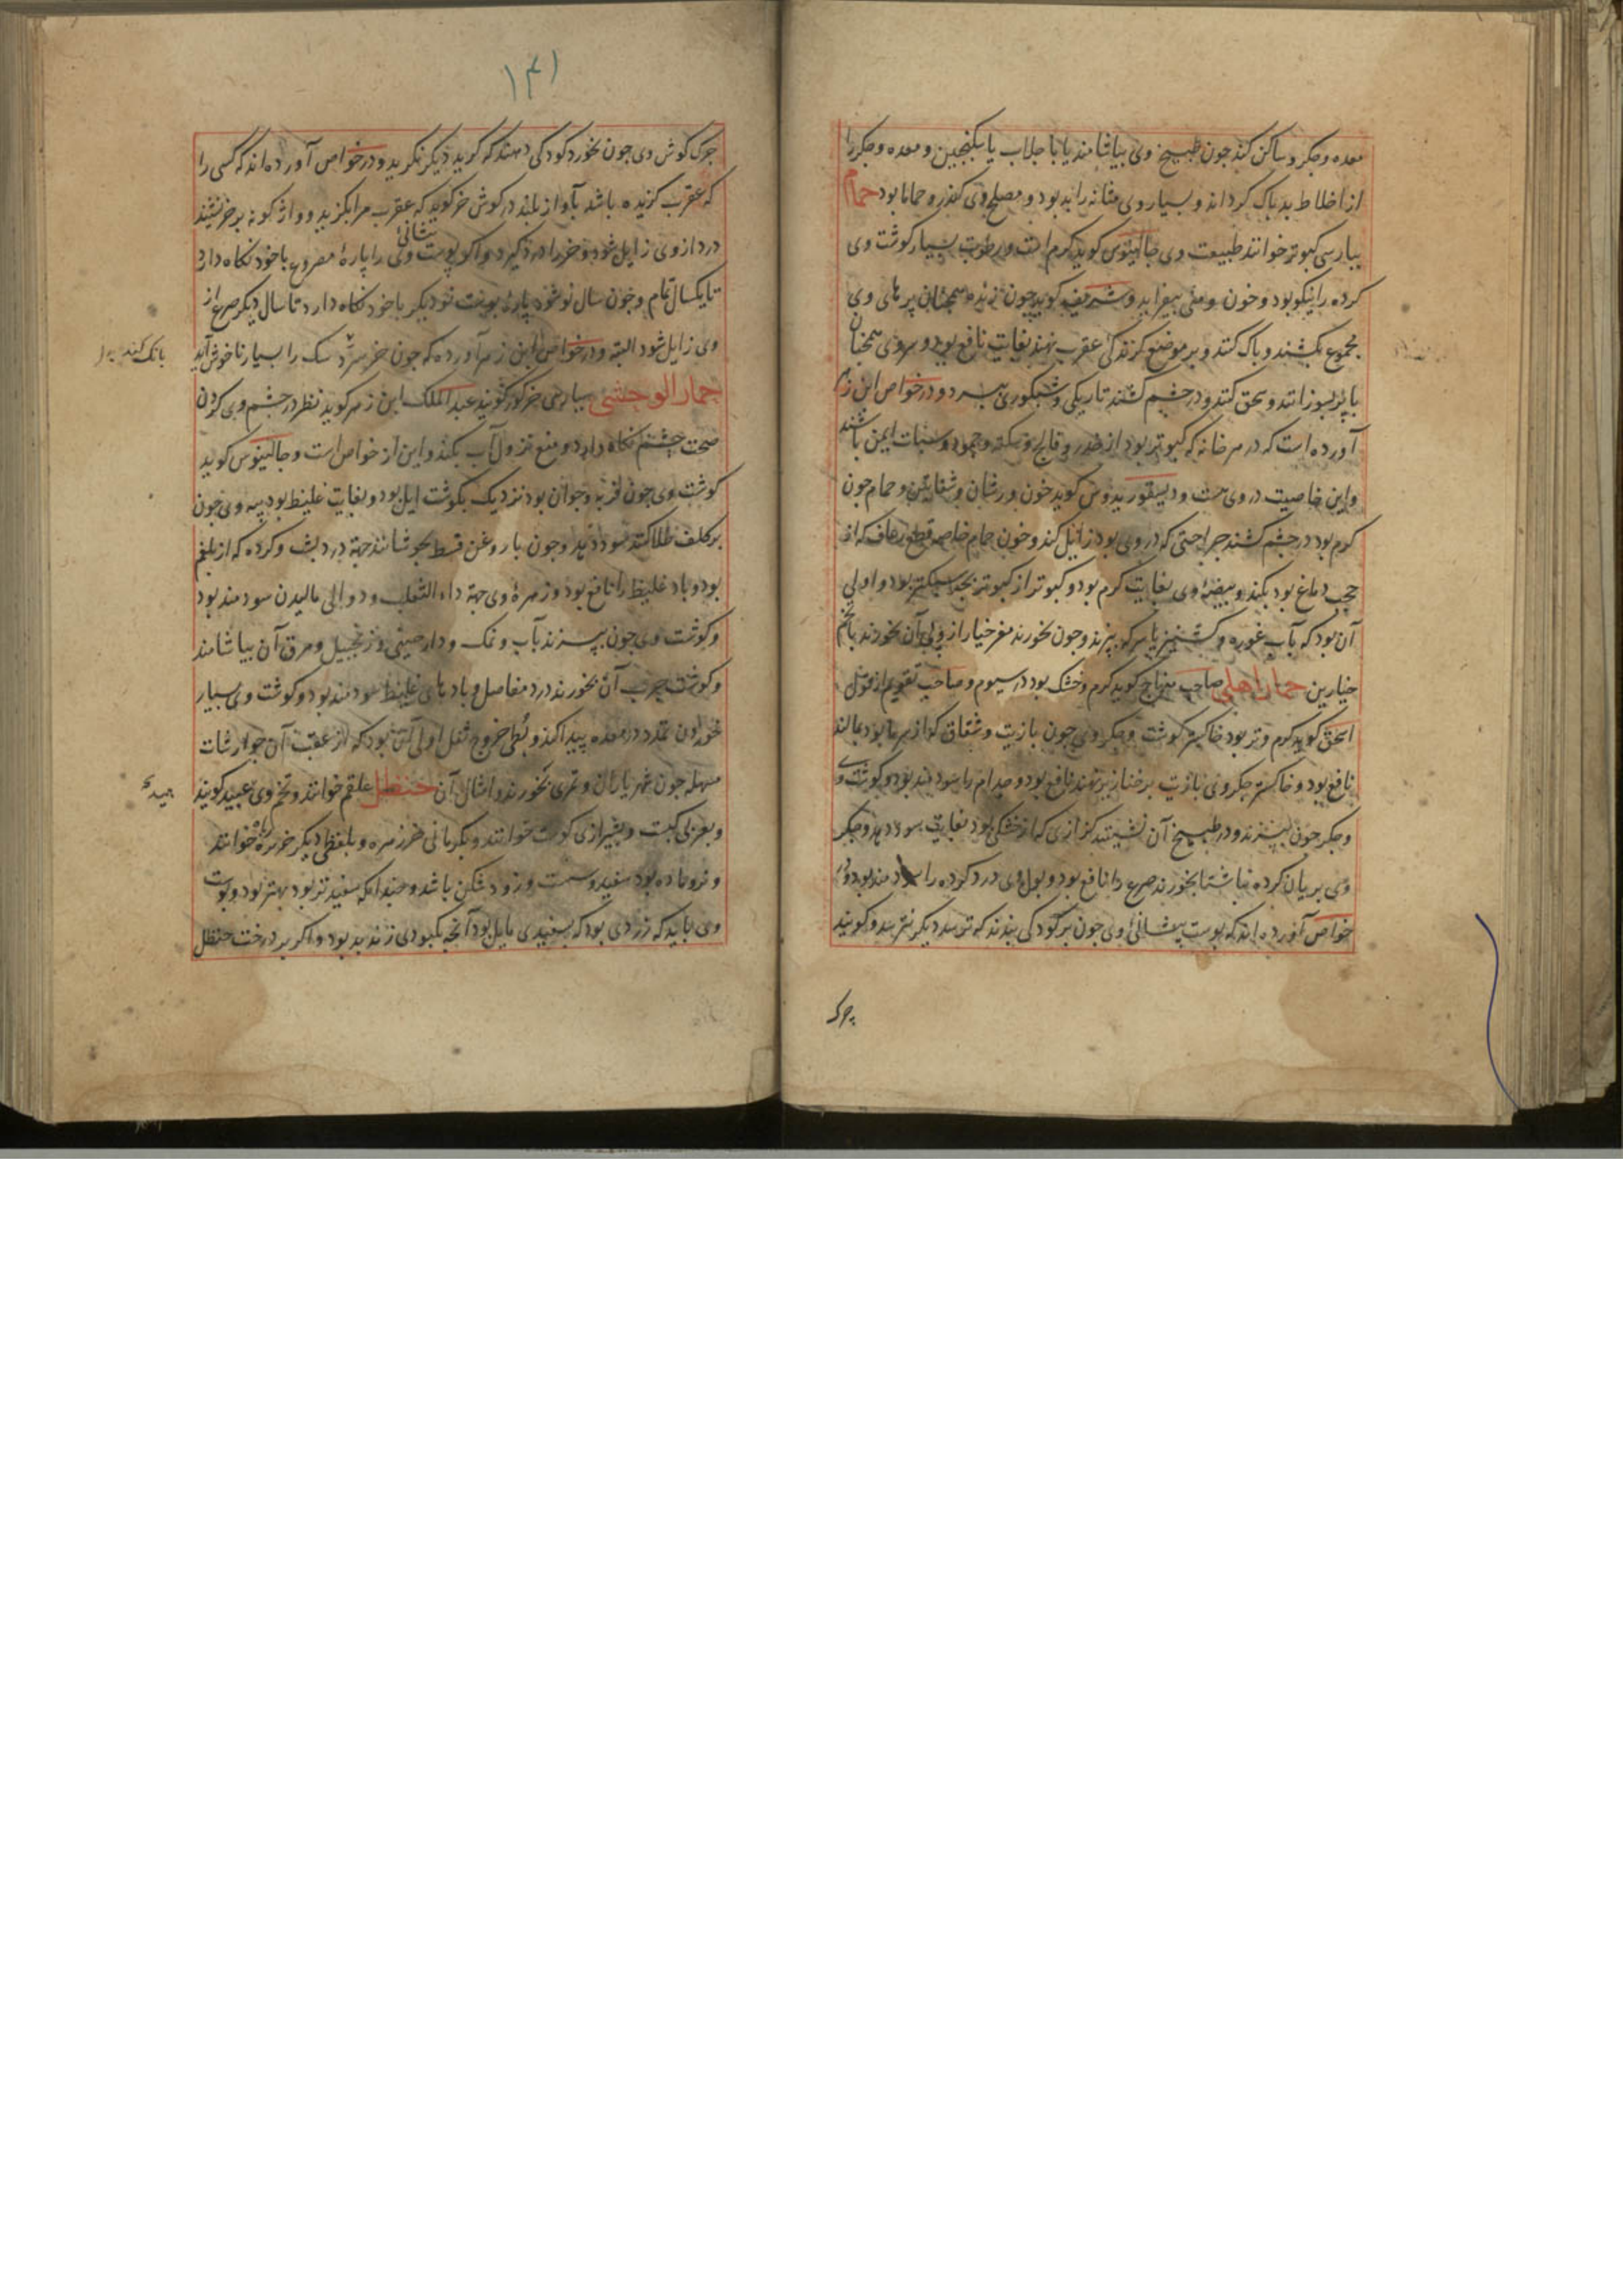 معده و جکر و ساکن کند جون طبیخ وی بیاشامند یا با جلاب یا سکنجبین و معده و جکر را
از اخلاط بد پاک کرداند و بسیار وی مثانه را بد بود و مصلح وی کندر و حماما بود حمام
بپارسی کبوتر خوانند طبیعت وی جالینوس کوید کرم است و رطوبت بسیار کوشت وی
کرده را نیکو بود و خون و منی بیفزاید و شریف کوید چون زنده همچنان پر های وی
مجموع بکشند و پاک کنند و بر موضع کزندکی عقرب نهند بغایت نافع بود و سر وی همچنان
با پر بسوزانند و سحق کنند و در جشم کشند تاریکی و شبکوری ببرد و در خواص ابن زهر
آورده است که در هر خانه که کبوتر بود از خدر و فالج و سکته و جمود و سبات ایمن باشند
و این خاصیت در وی هست و دیسقوریدوس کوید خون ورشان و شفانین و حمام جون
کرم بود در جشم کشند جراحتی که در وی بود زائل کند و خون حمام خاصه قطع رعاف که از
حجب دماغ بود بکند و بیضهٔ وی بغایت کرم بود و کبوتر از کبوتر بجه سبکتر بود و اولی
آن بود که بآب غوره و کشنیز یا سرکه بپزند و جون بخورند مغز خیار از پی آن بخورند با تخم
خیارین حمار اهلی صاحب منهاج کوید کرم و خشک بود در سیوم و صاحب تقویم از قول
اسحق کوید کرم و تر بود خاکستر کوشت و جکر وی جون با زیت و شقاق که از سرما بود بمالند
نافع بود و خاکستر جکر وی با زیت بر خنازیر نهند نافع بود و جذام را سودمند بود و کوشت وی
و جکر جون بپزند و در طبیخ آن نشینند کزازی که از خشکی بود بغایت سود دهد و جکر
وی بریان کرده ناشتا بخورند صرع را نافع بود و بول وی درد کرده را سودمند بود و در
خواص آورده اند که پوست پیشانی وی جون بر کودکی بندند که ترسد دیکر نترسد و کویند
چرک
۱۴۱
جرک کوش وی جون بخورد کودکی دهند که کرید دیکر نکرید و در خواص آورده اند که کسی را
که عقرب کزیده باشد بآواز بلند در کوش خر کوید که عقرب مرا بکزید و واژکونه بر خر نشیند
درد از وی زایل شود و خر را درد کیرد و اکر پوست پیشانی وی را پارهٔ مصروع با خود نکاه دارد
تا یکسال تمام و جون سال نو شود پارهٔ پوست نو دیکر با خود نکاه دارد تا سال دیکر صرع از
وی زایل شود البته و در خواص ابن زهر آورده که جون خر سک را بسیار ناخوش آید
بانک کند
حمار الوحشی بپارسی خر کور کویند عبد الملک ابن زهر کوید نظر در جشم وی کردن
صحت جشم نکاه دارد و منع نزول آب بکند و این از خواص است و جالینوس کوید
کوشت وی جون فربه و جوان بود نزدیک بکوشت ایل بود و بغایت غلیظ بود پیه وی جون
بر کلف طلا کنند سود دهد و جون با روغن قسط بجوشانند جهة درد پشت و کرده که از بلغم
بود و باد غلیظ را نافع بود و زهرهٔ وی جهة داء الثعلب و دوالی مالیدن سودمند بود
و کوشت وی جون بپزند بآب و نمک و دارچینی و زنجبیل و مرق آن بیاشامند
و کوشت چرب آن بخورند درد مفاصل و بادهای غلیظ سودمند بود و کوشت وی بسیار
خوردن تمدد در معده پیدا کند و بطی خروج ثفل اولی آن بود که از عقب آن جوارشات
مسهله جون شهریاران و تمری بخورند و امثال آن حنظل علقم خوانند و تخم وی هبید کویند
هبید
و بعربی کبست و بشیرازی کوست خوانند و بکرمانی خرزهره و بلفظی دیکر خربزهٔ خوانند
و نر و ماده بود سفید و سست و زود شکن باشد و جندانکه سفیدتر بود بهتر بود و پوست
وی باید که زردی بود که بسفیدی مایل بود آنجه بکبودی زند بد بود و اکر بر درخت حنظل